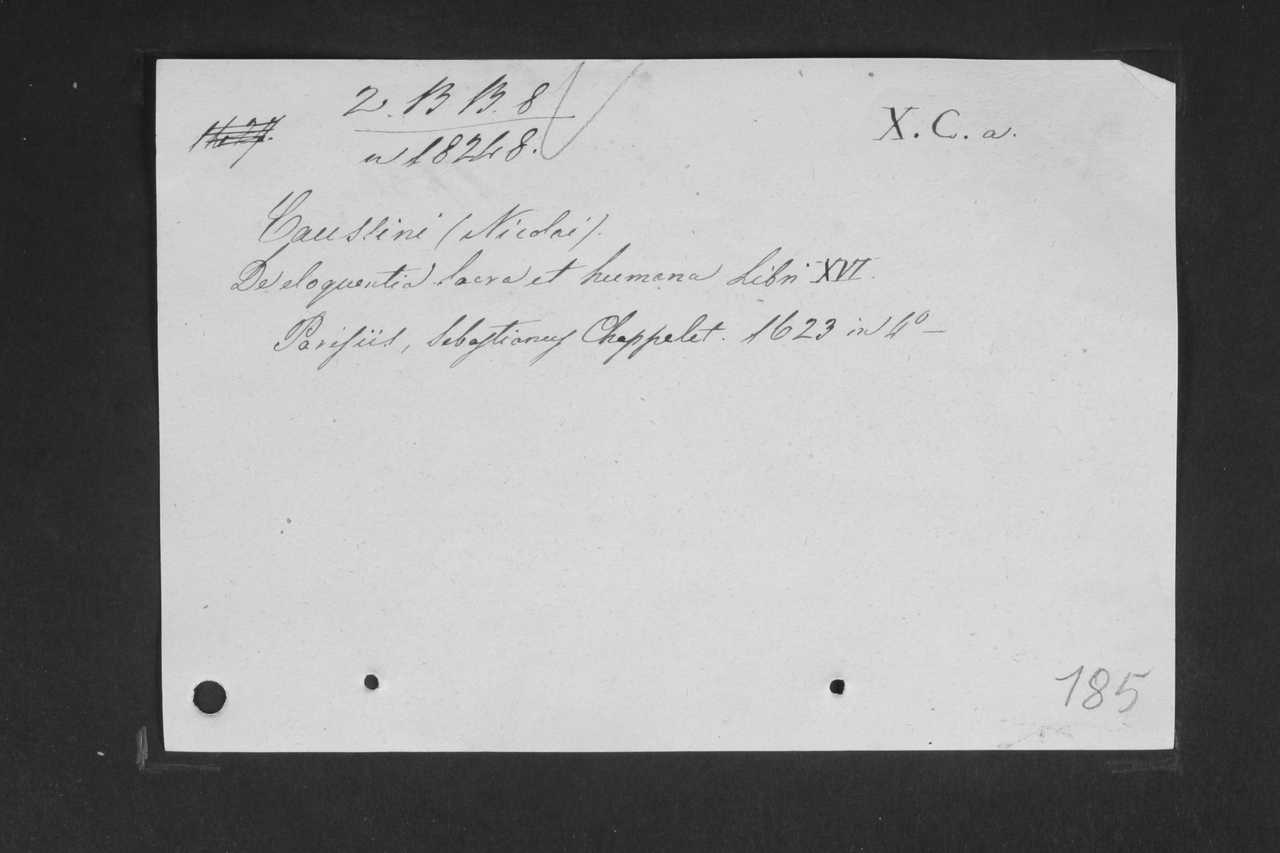 2. B B. 8
n 18248.
X. C. a.
Caussini (Nicolai).
De eloquentia sacra et humana Libri XVI.
Parisiis, Sebastianus Chappelet. 1623 in 4º—
185